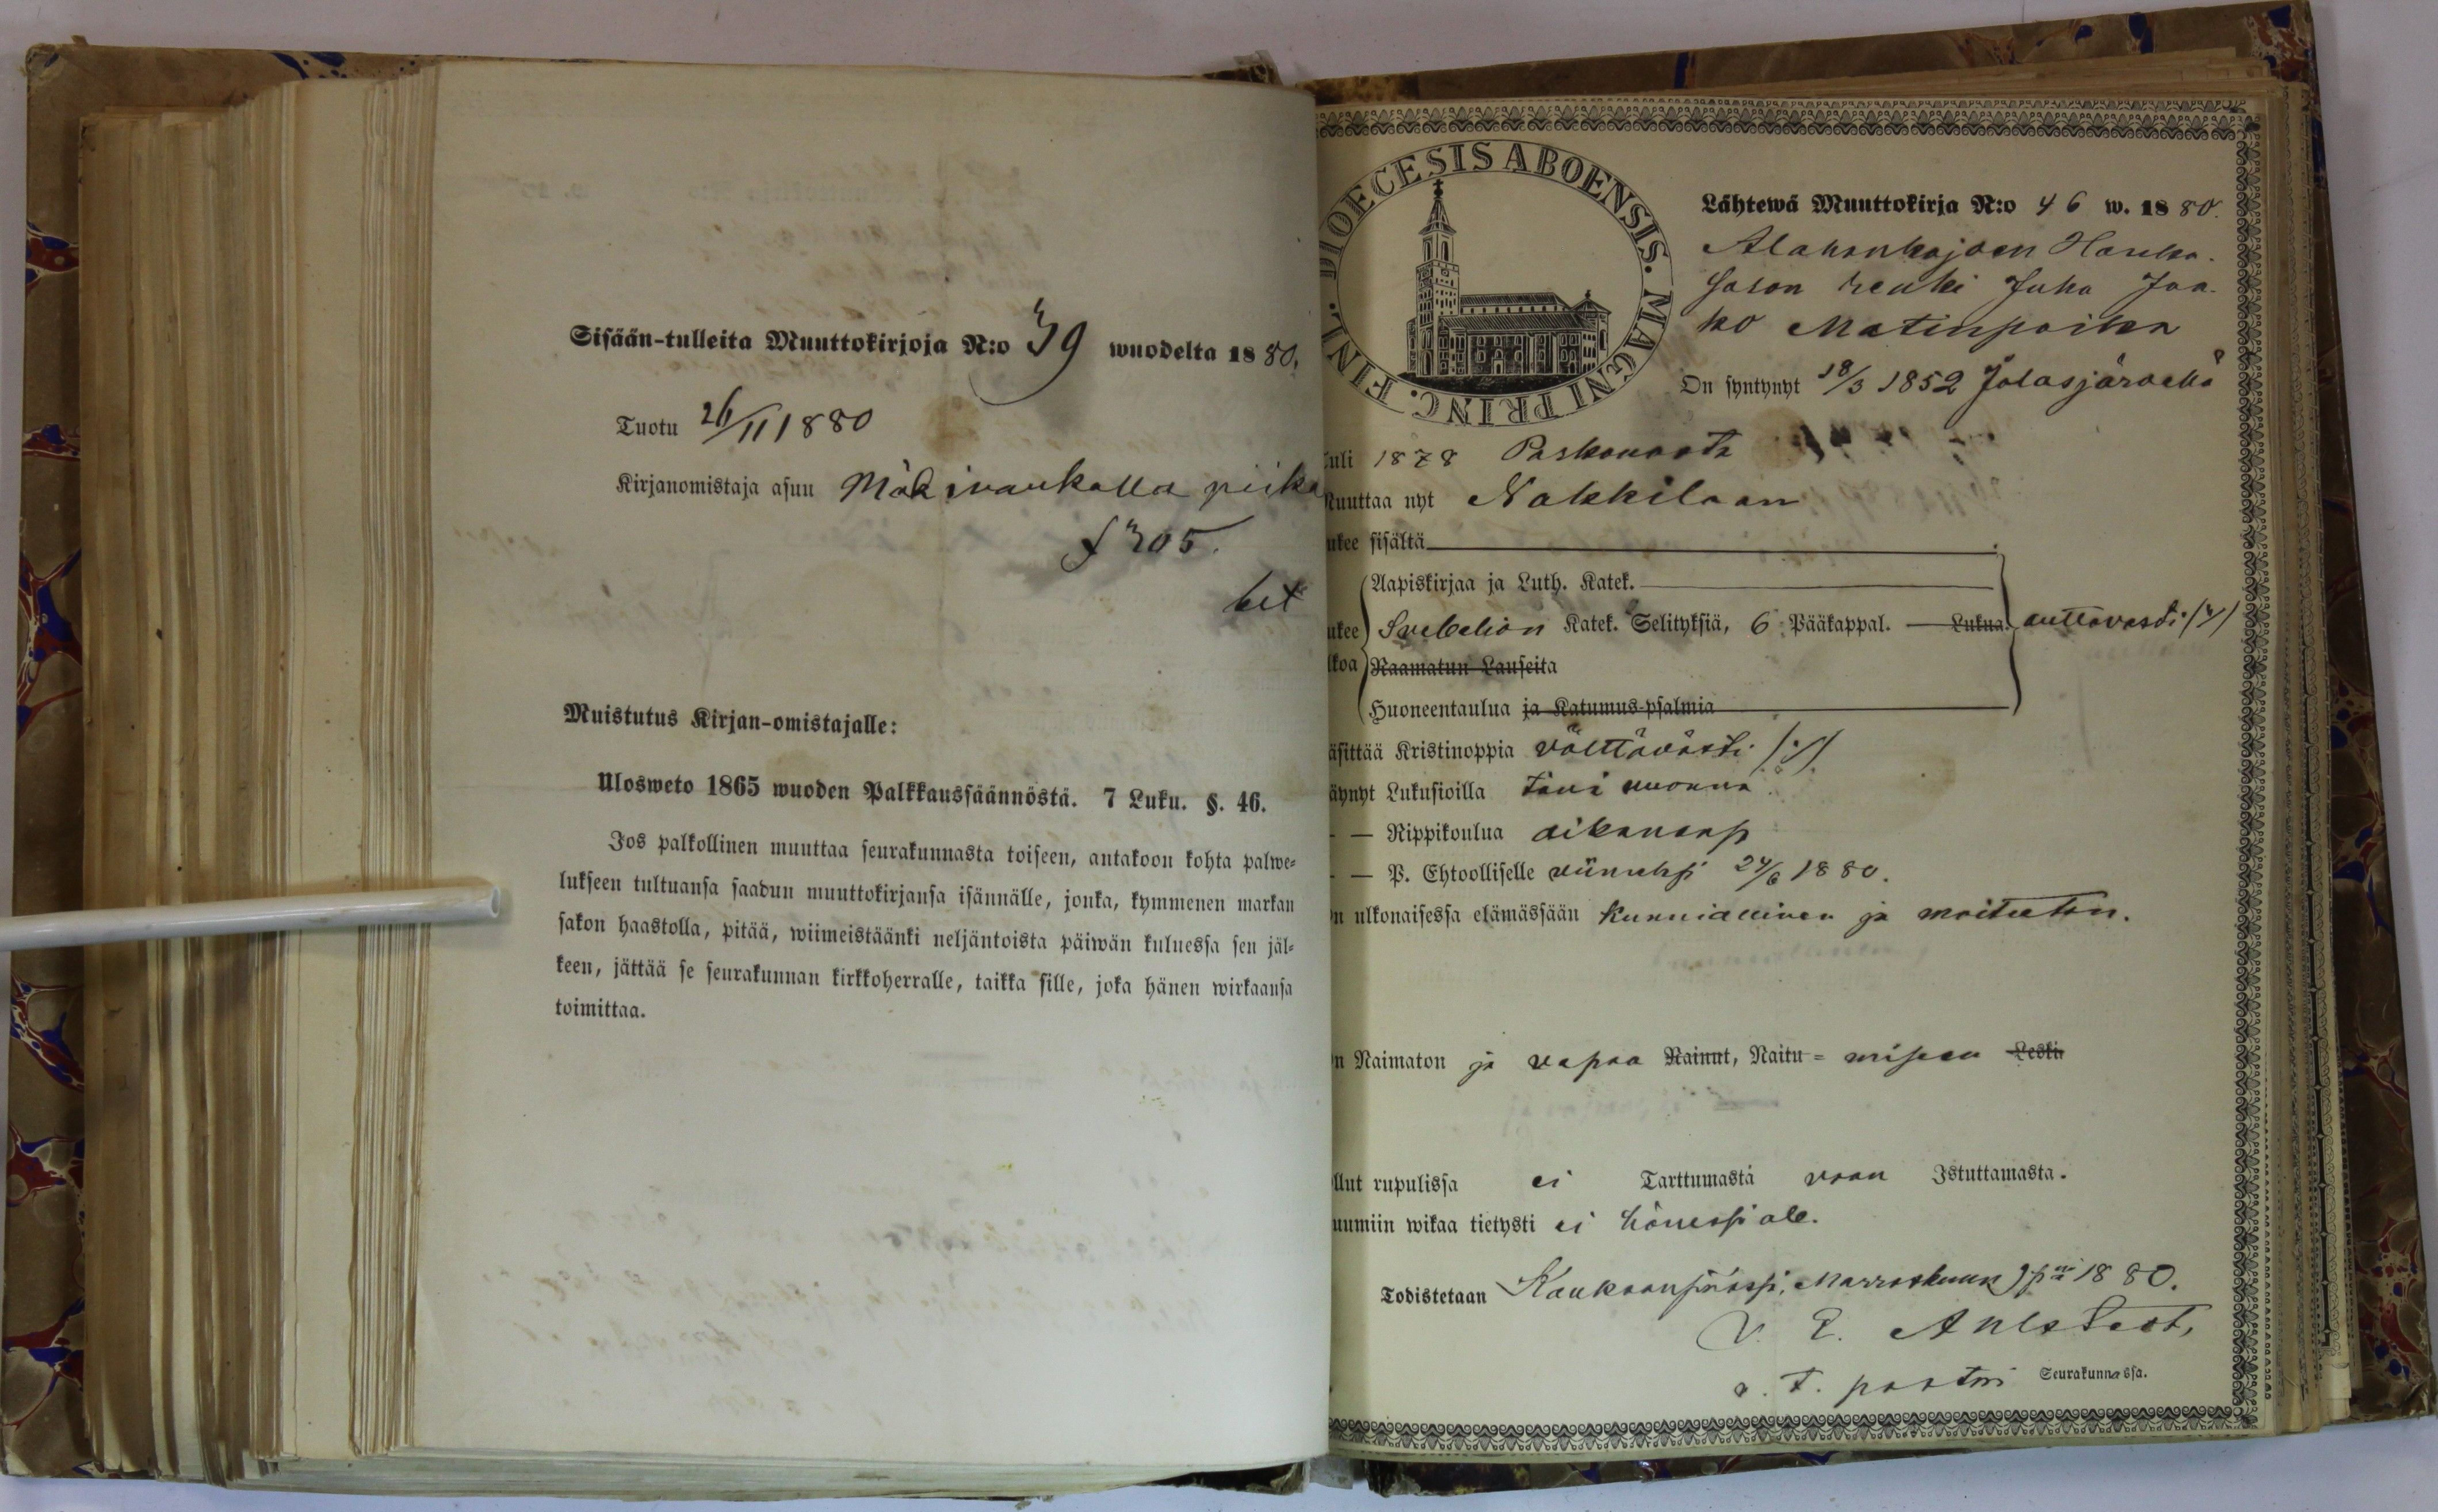 Sisään-tulleita Muuttokirjoja N:o 39 wuodelta 1880.
Tuotu 26/11 1880
Kirjanomistaja asuu piika
305.
Muistutus Kirjan-omistajalle:
Ulosweto 1865 wuoden Palkkaussäännöstä. 7 Luku. §. 46.
Jos palkollinen muuttaa seurakunnasta toiseen, antakoon kohta palwe=
lukseen tultuansa saadun muuttokirjansa isännälle, jonka, kymmenen markan
sakon haastolla, pitää, wiimeistäänki neljäntoista päiwän kuluessa sen jäl=
keen, jättää se seurakunnan kirkkoherralle, taikka sille, joka hänen wirkaansa
toimittaa.
DIOECESIS ABOENSIS. MAGNI PRINC. FINL.
Lähtewä Muuttokirja N:o 46 w. 1880.
renki Juha Jaa-
ko Matinpoika
On syntynyt 18/3 1852 Jalasjärvellä
uli 1878
uuttaa nyt Nakkilaan
ukee sisältä
Aapiskirjaa ja Luth. Katek.
ukee Svebelion Katek. Selityksiä, 6 Pääkappal. Lukua. auttavasti
lkoa Raamatun Lauseita
Huoneentaulua ja Katumus-psalmia
äsittää Kristinoppia välttävästi
äynyt Lukusioilla tänä vuonna
— Rippikoulua aikanansa
— P. Ehtoolliselle viimeksi 24/6 1880.
n ulkonaisessa elämässään kunniallinen ja moitteeton.
n Naimaton ja vapaa Nainut, Naitu= miseen Leski
llut rupulissa ei Tarttumasta vaan Istuttamasta.
uumiin wikaa tietysti ei hänessä ole.
Todistetaan Marraskuun 1880.
Ahlstedt,
v. t. pastori Seurakunnassa.